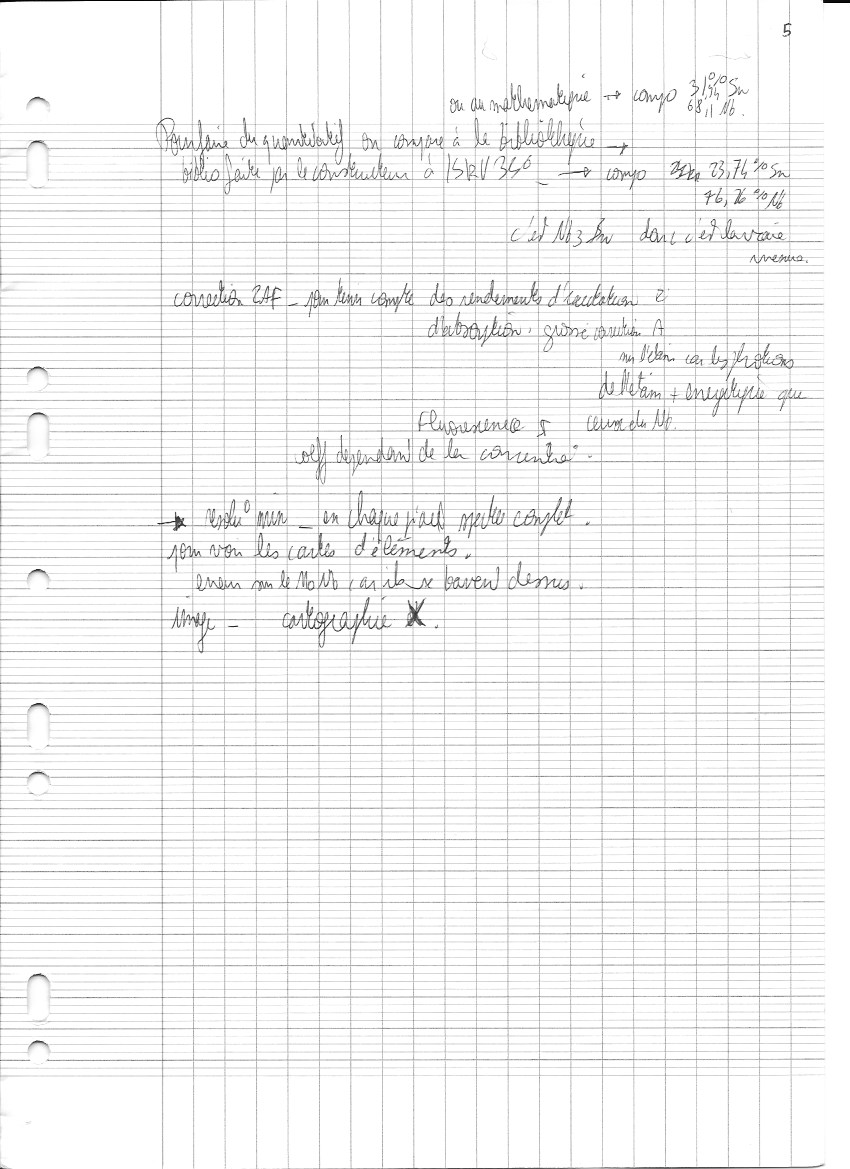 5
ou au mathematique → compo 31,94 % Sn
68,11 Nb.
Pour faire du quantitatif on compare à la bibliothèque →
biblio faite par le constructeur à 15KV 35° → compo 23,74 % Sn
76,26 % Nb
c'est Nb3Sn donc c'est la vraie
mesure.
correction ZAF - pour tenir compte des rendements d'excitation Z
d'absorption. grosse correction A
sur l'étain car les photons
de l'étain + énergétique que
Fluorescence F ceux du Nb.
coeff dependant de la concentra°.
→ résolu° min - en chaque pixel spectre complet.
pour voir les cartes d'éléments.
erreur sur le car ils se bavent dessus.
image - cartographie X.